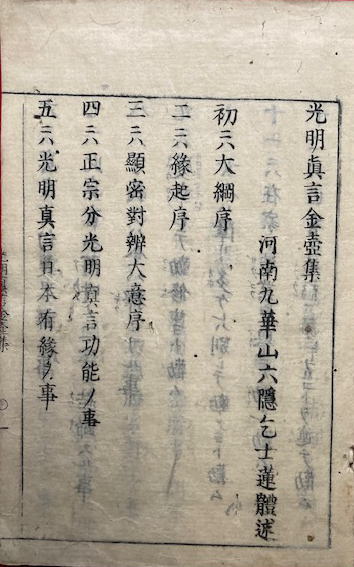 光明眞言金壺集
河南九華山六隱乞士蓮體述
初ニハ大綱序
二ニハ緣起序
三ニハ顯密對辨大意序
四ニハ正宗分光明眞言功能ノ事
五ニハ光明真言日本有緣ノ事